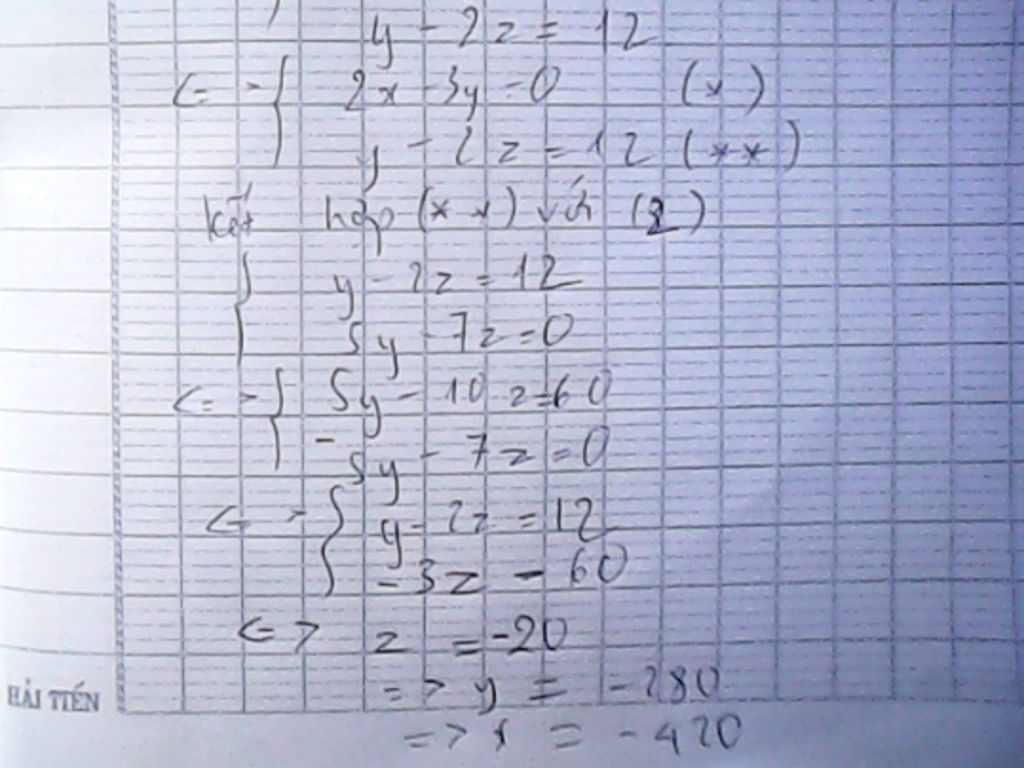 y - 2z = 12
<=> { 2x - 3y = 0 (*)
y - 2z = 12 (**)
kết hợp (**) với (2)
{ y - 2z = 12
5y - 7z = 0
<=> { 5y - 10z = 60
- 5y - 7z = 0
<=> { y - 2z = 12
-3z = 60
<=> z = -20
=> y = -280
HẢI TIẾN
=> x = -420